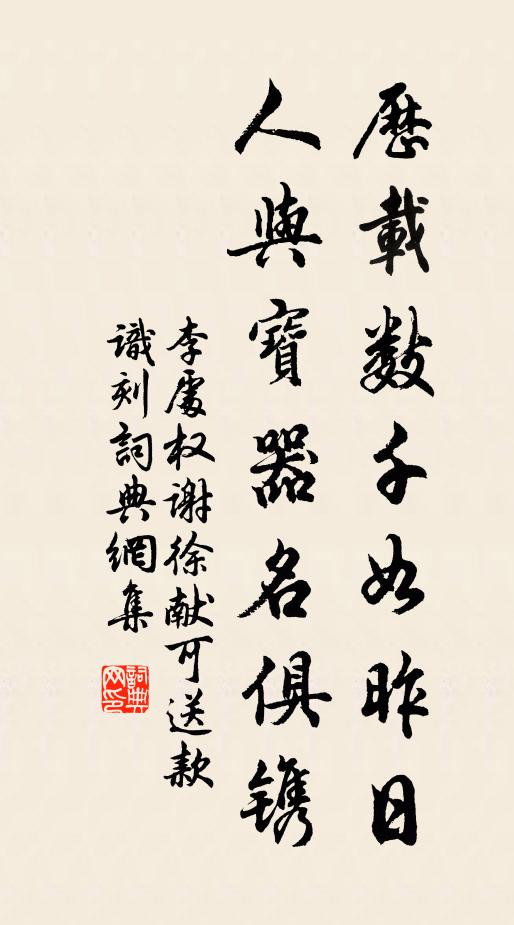 歷載數千如昨日
人與寶器名俱镌
李處权谢徐献可送款
識刻詞典網集
詞典网印